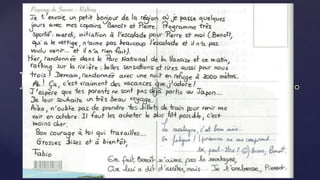 Je t'envoie un petit bonjour de la région où je passe quelques
jours avec mes copains Benoît et Pierre. Programme très
sportif: mardi, initiation à l'escalade pour Pierre et moi (Benoît,
qui a le vertige, n'aime pas beaucoup l'escalade et il n'a pas
voulu venir... et il n'a rien fait).
Hier, randonnée dans le Parc National de la Vanoise et ce matin,
rafting sur la rivière: belles sensations et rires aussi pour nous
trois! Demain, randonnée avec une nuit en refuge à 2000 mètres.
Ah! Ça, c'est vraiment des vacances que j'adore!
J'espère que tes parents ne sont pas déjà partis au Japon...
Je leur souhaite un très beau voyage.
Aïko, n'oublie pas de prendre tes billets de train pour venir me
voir en octobre. Il faut les acheter le plus tôt possible, c'est
moins cher.
Bon courage à toi qui travailles...
Grosses bises et à bientôt,
Fabio
La montagne, c'est bien mais...
ça fatigue!
personne ne me comprend
Bises, Benoît
En fait, Benoît n'aime pas la montagne,
On lui a dit d'aller mais... Je t'embrasse, Pierre.